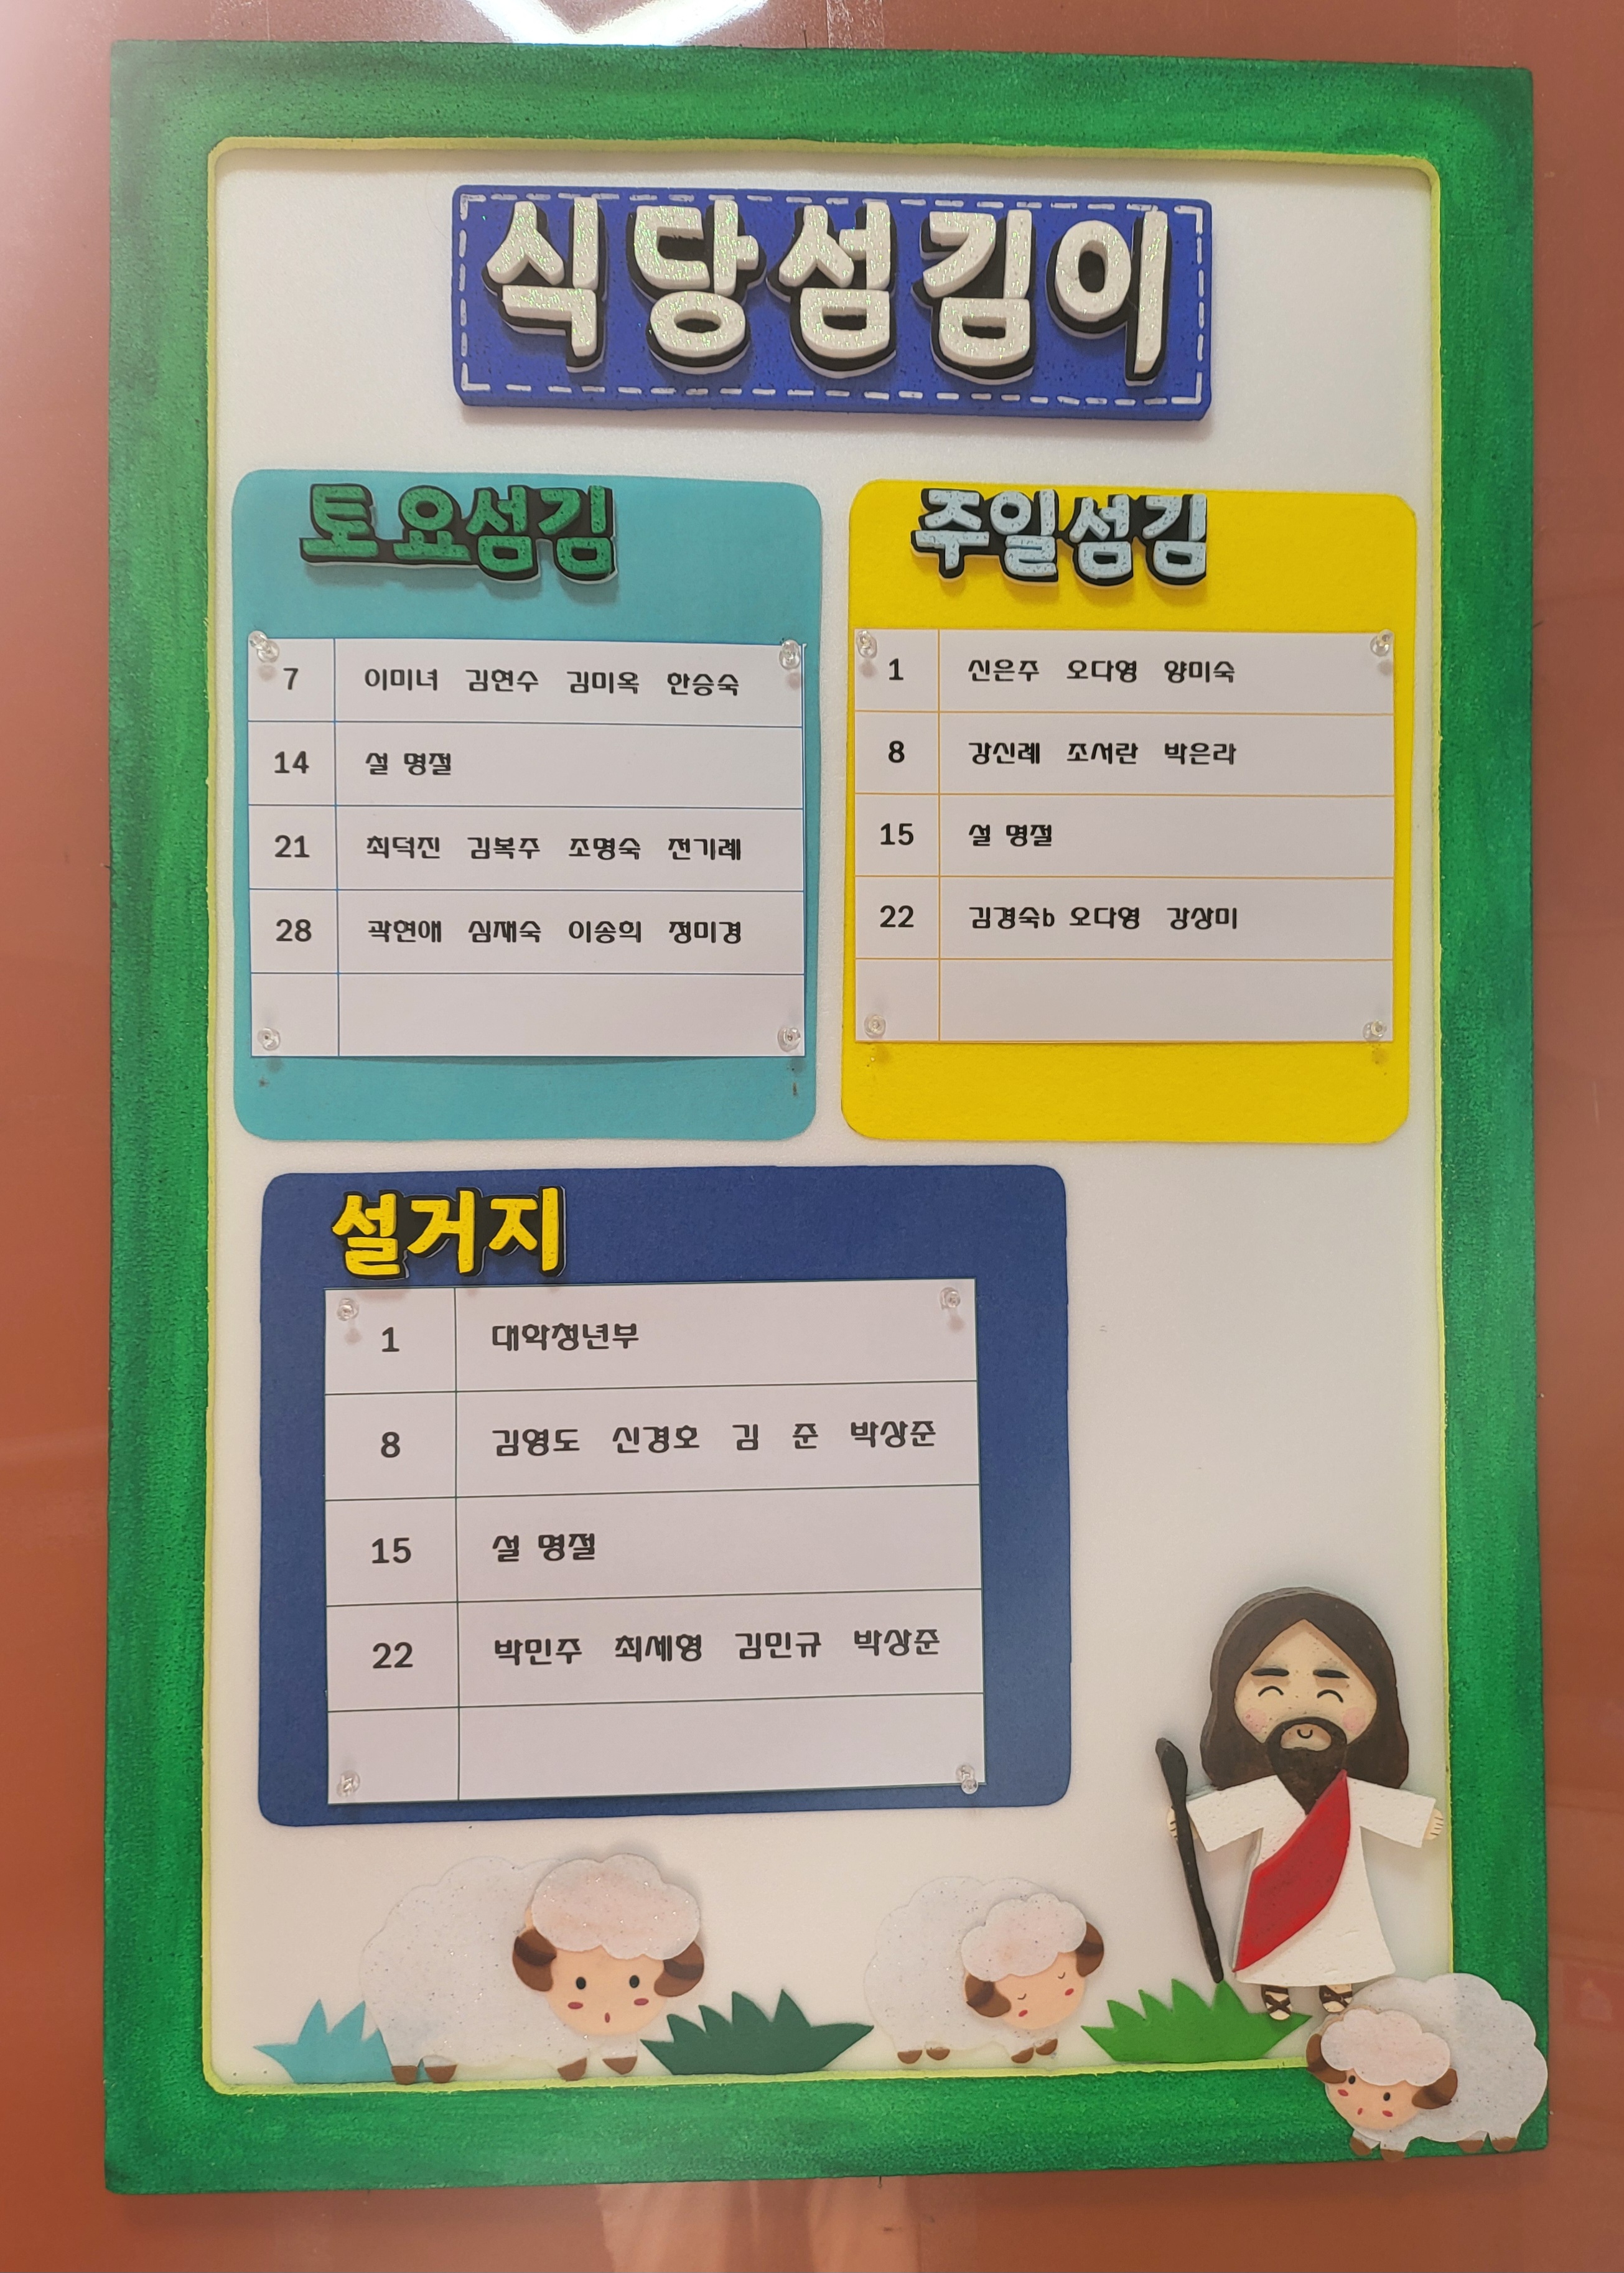 식당섬김이
토요섬김
7 이미녀 김현수 김미옥 한승숙
14 설 명절
21 최덕진 김복주 조명숙 전기례
28 곽현애 심재숙 이송희 정미경
주일섬김
1 신은주 오다영 양미숙
8 강신례 조서란 박은라
15 설 명절
22 김경숙b 오다영 강상미
설거지
1 대학청년부
8 김영도 신경호 김 준 박상준
15 설 명절
22 박민주 최세형 김민규 박상준